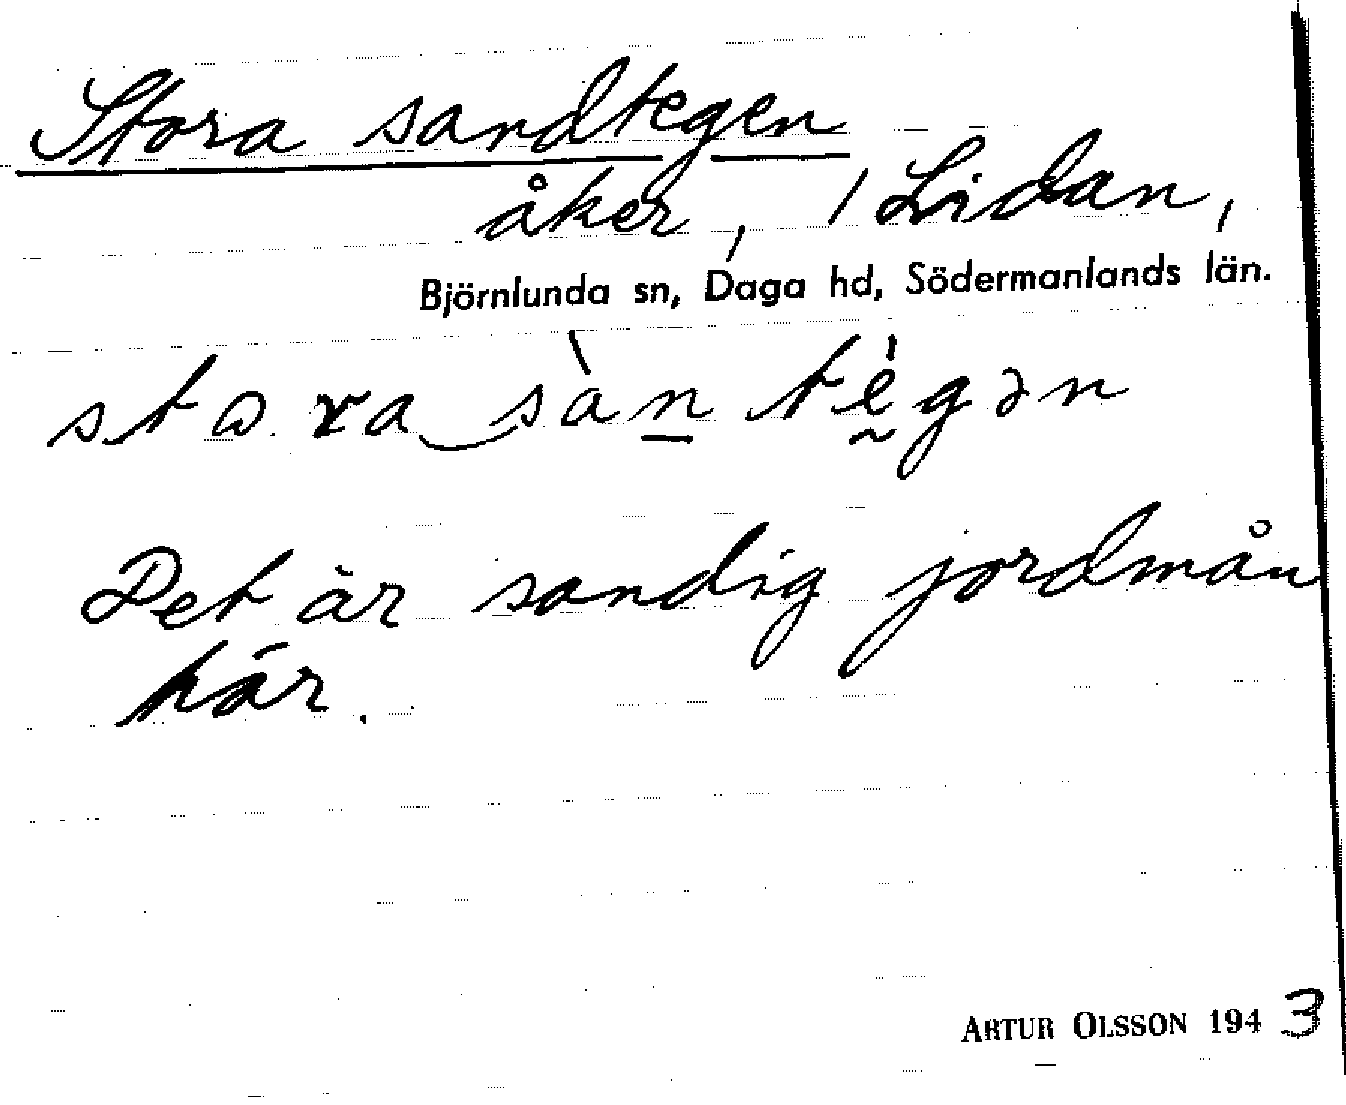 Stora sandtegen
åker, / Lidan,
Björnlunda sn, Daga hd, Södermanlands län.
Det är sandig jordmån
här.
ARTUR OLSSON 1943